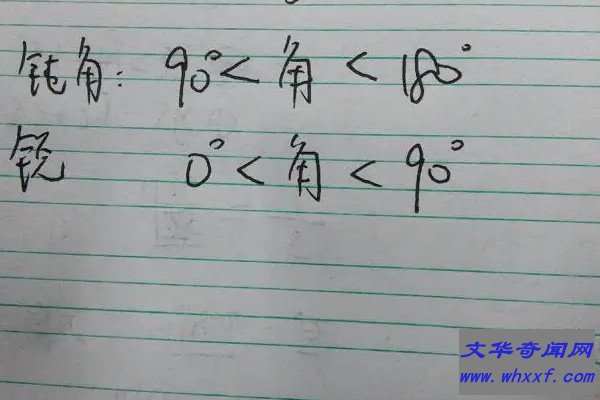 钝角：90°<角<180°
锐 0°<角<90°
文华奇闻网
www.whxxf.com